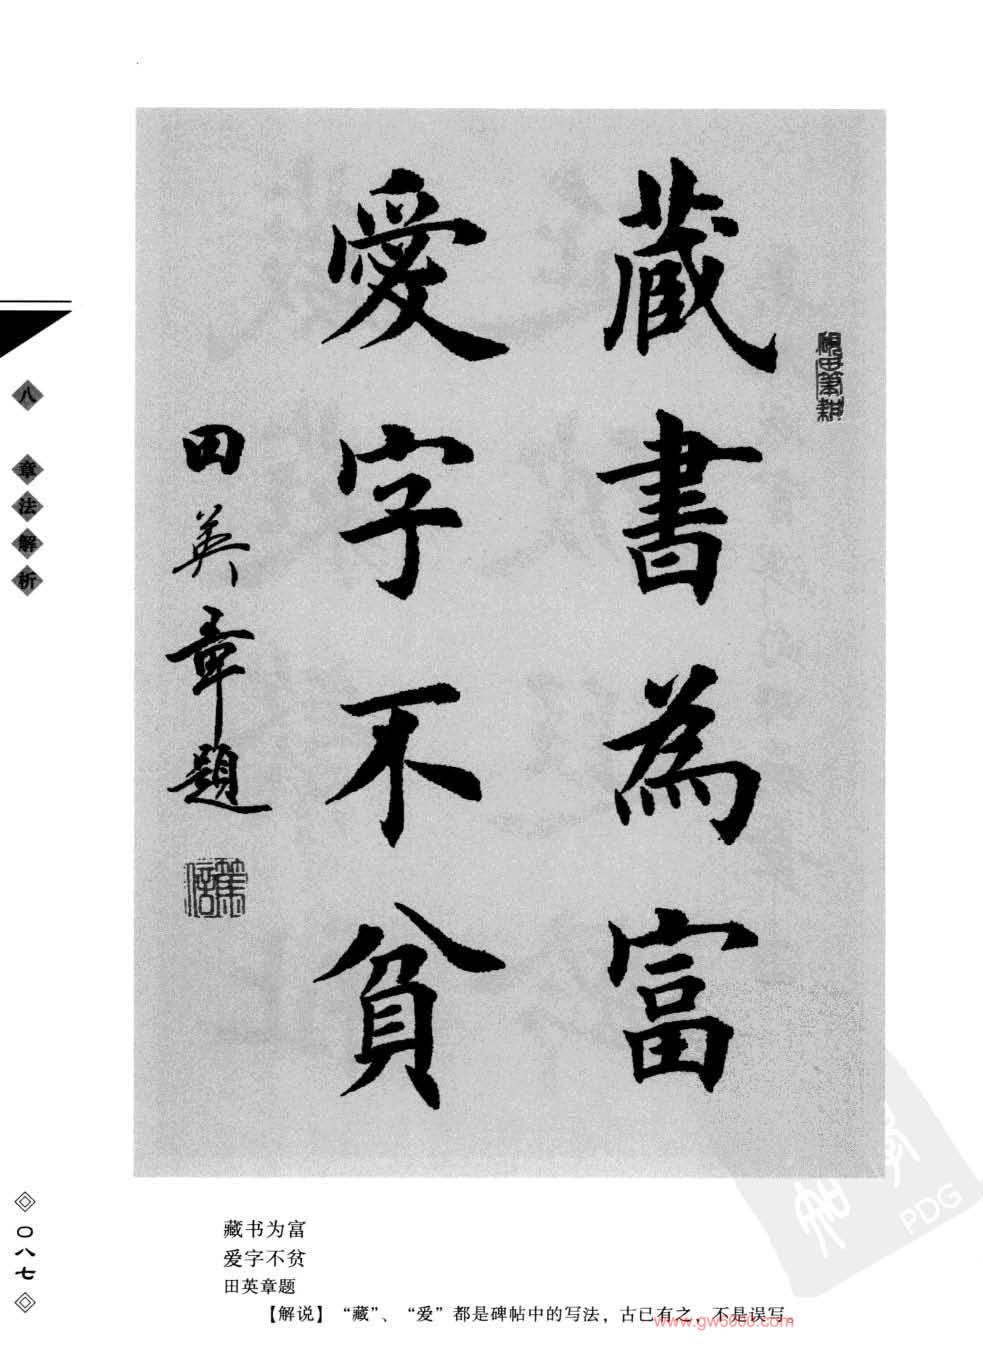 藏書為富
愛字不貧
田英章題
硯田筆耕
八 章法解析
〇八七
藏书为富
爱字不贫
田英章题
【解说】“藏”、“爱”都是碑帖中的写法，古已有之，不是误写。
www.gw5000.com
PDG